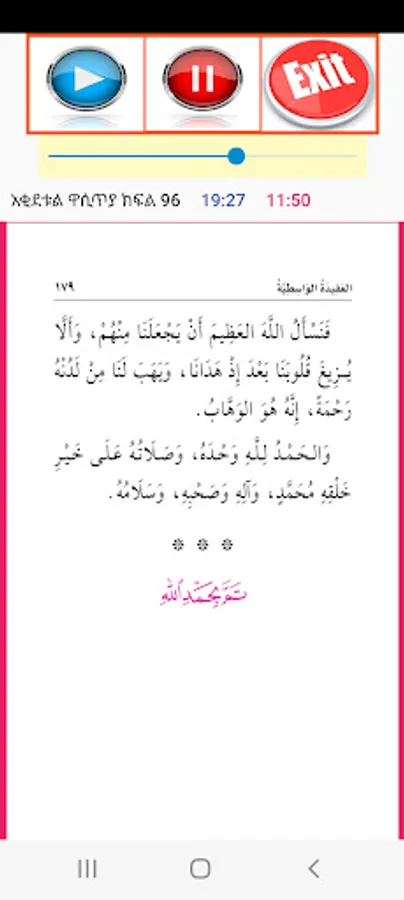 Exit
አቂደቱል ዋሲጥያ ክፍል 96 19:27 11:50
العَقِيدَةُ الوَاسِطِيَّةُ ١٧٩
فَنَسْأَلُ اللَّهَ العَظِيمَ أَنْ يَجْعَلَنَا مِنْهُمْ، وَأَلَّا
يُزِيغَ قُلُوبَنَا بَعْدَ إِذْ هَدَانَا، وَيَهَبَ لَنَا مِنْ لَدُنْهُ
رَحْمَةً، إِنَّهُ هُوَ الوَهَّابُ.
وَالحَمْدُ لِلَّهِ وَحْدَهُ، وَصَلَاتُهُ عَلَى خَيْرِ
خَلْقِهِ مُحَمَّدٍ، وَآلِهِ وَصَحْبِهِ، وَسَلَامُهُ.
تَمَّ بِحَمْدِ اللَّهِ